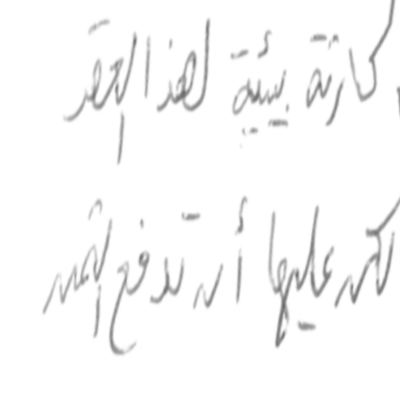 كارثة بيئية لهذا الحقد
لكن عليها أن تدفع الثمن